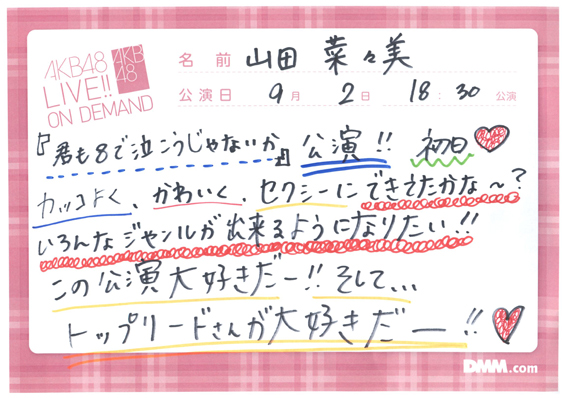 AKB48 LIVE!! ON DEMAND
AKB48
名前 山田 菜々美
公演日 9月 2日 18:30 公演
『君も8で泣こうじゃないか』公演!! 初日♥
カッコよく、かわいく、セクシーにできてたかな〜?
いろんなジャンルが出来るようになりたい!!
この公演大好きだー!! そして...
トップリードさんが大好きだー!!♥
DMM.com